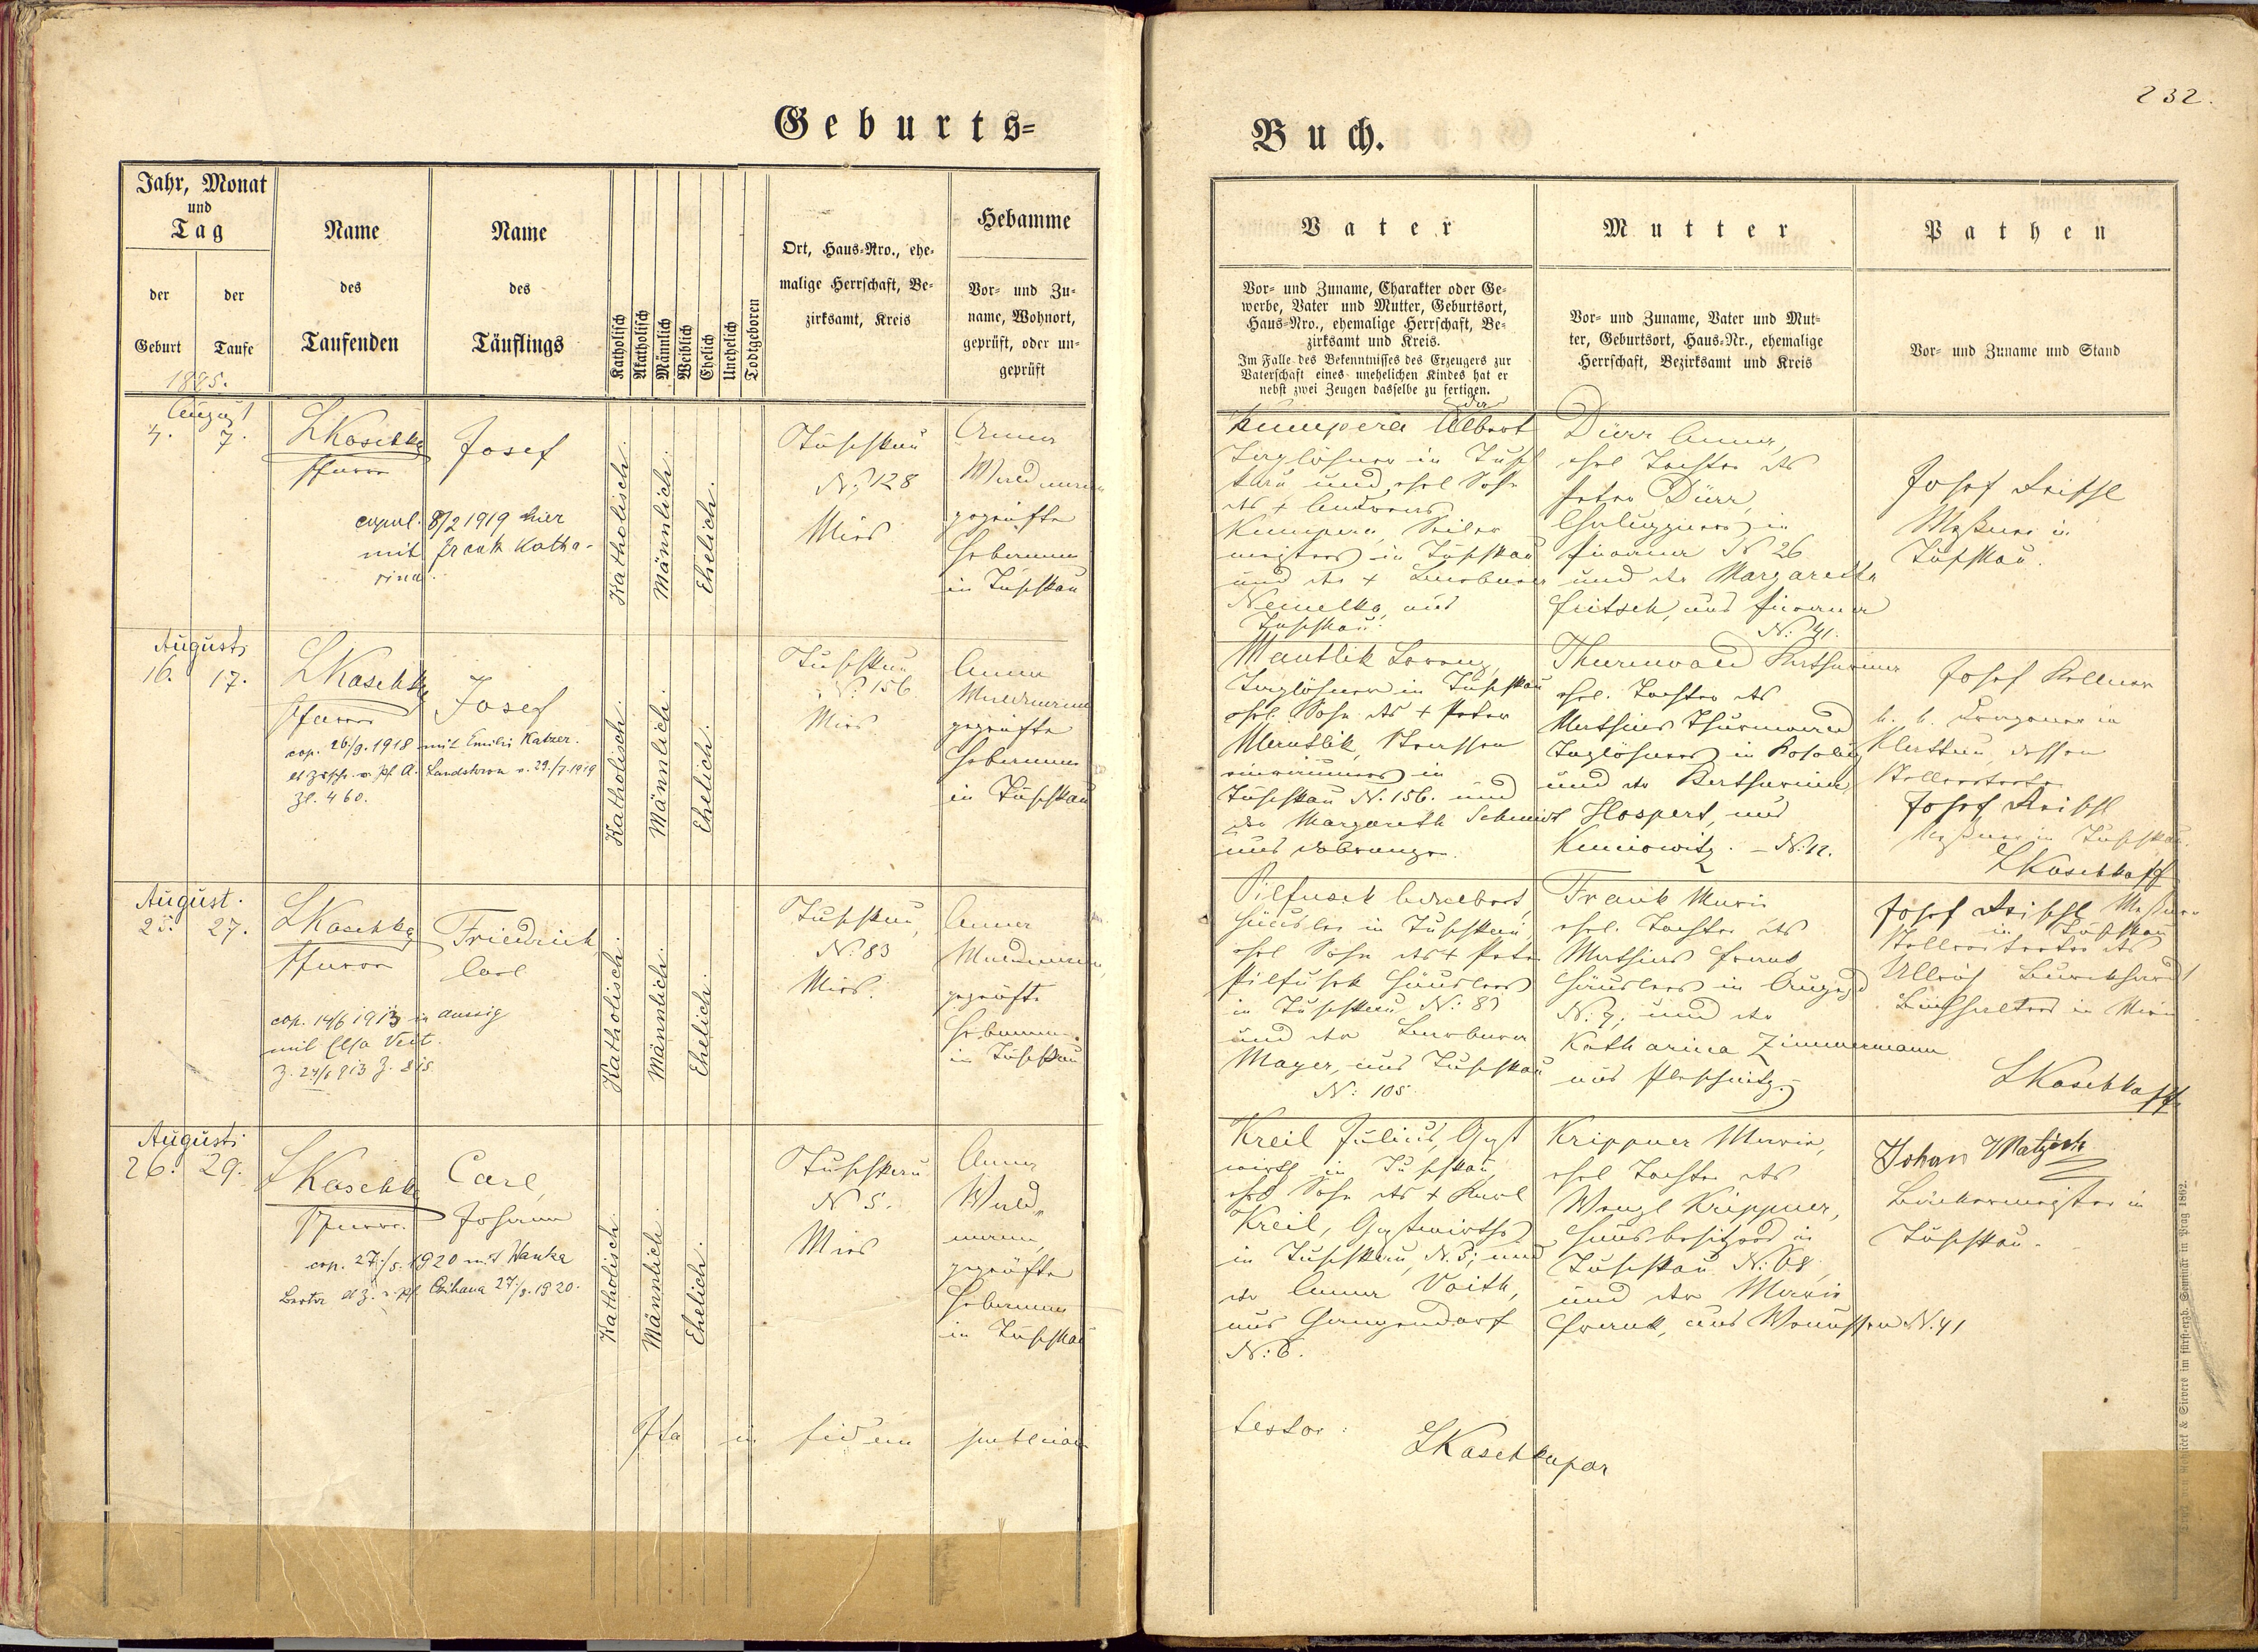 Geburts=
Jahr, Monat
und
Tag
der
Geburt
der
Taufe
Name
des
Taufenden
Name
des
Täuflings
Katholisch
Akatholisch
Männlich
Weiblich
Ehelich
Unehelich
Todtgeboren
Ort, Haus-Nro., ehe-
malige Herrschaft, Be-
zirksamt, Kreis
Hebamme
Vor- und Zu-
name, Wohnort,
geprüft, oder un-
geprüft
1895.
August
4. 7.
LKaschka
Pfarrer
Josef
copul. 8/2 1919 hier
mit Frank Katha-
rina.
Katholisch.
Männlich.
Ehelich.
Tuschkau
N. 128
Mies
Anna
geprüfte
Hebamme
in Tuschkau
August
16. 17.
LKaschka
Pfarrer
Josef
cop. 26./9. 1918 mit Emilie Katzer.
Landskron v. 29./7. 1919
Zl. 460.
Katholisch.
Männlich.
Ehelich.
Tuschkau
N. 156
Mies
Anna
geprüfte
Hebamme
in Tuschkau
August.
25. 27.
LKaschka
Pfarrer
Friedrich
Carl
cop. 14/6 1913 in Aussig
mit Elsa Veit.
Katholisch.
Männlich.
Ehelich.
Tuschkau,
N. 83
Mies.
Anna
geprüfte
Hebamme
in Tuschkau
August
26. 29.
LKaschka
Pfarrer.
Carl,
Johann
cop. 27./5. 1920 mit Wanka
Berta
Katholisch.
Männlich.
Ehelich.
Tuschkau
N 5.
Mies
Anna
Wald„
mann,
geprüfte
Hebamme
in Tuschkau
Ita in fidem publicam
Buch.
232.
Vater
Vor- und Zuname, Charakter oder Ge-
werbe, Vater und Mutter, Geburtsort,
Haus-Nro., ehemalige Herrschaft, Be-
zirksamt und Kreis.
Im Falle des Bekenntnisses des Erzeugers zur
Vaterschaft eines unehelichen Kindes hat er
nebst zwei Zeugen dasselbe zu fertigen.
Mutter
Vor- und Zuname, Vater und Mut-
ter, Geburtsort, Haus-Nr., ehemalige
Herrschaft, Bezirksamt und Kreis
Pathen
Vor- und Zuname und Stand
Kumpera Albert
Taglöhner in Tusch
kau und ehel Sohn
des + Andreas
Kumpera, Seiler
meisters in Tuschkau
und der + Barbara
Nemelka, aus
Tuschkau.
Dürr Anna,
ehel Tochter des
Peter Dürr,
in
N 26
und der Margaretha
Fritsch, aus
N. 41.
Josef
Meßner in
Tuschkau.
Mantlik Lorenz,
Taglöhner in Tuschkau
ehel. Sohn des + Peter
Mantlik, Strassen
einräumers in
Tuschkau N. 156. und
der Margareth Schmidt
aus
Thurnwald Katharina
ehel. Tochter des
Mathias Thurnwald
Taglöhners in
und der Katharina
Hospert, aus
N. 12.
Josef Kellner
k. k. Dragoner in
Klattau, dessen
Stellvertreter
Josef
Meßner in Tuschkau.
LKaschka
Adalbert,
Häusler in Tuschkau,
ehel Sohn des + Peter
Häuslers
in Tuschkau N: 83
und der Barbara
Mayer, aus Tuschkau
N: 105
Frank Marie
ehel. Tochter des
Mathias Frank
Häuslers in
N. 7, und der
Katharina Zimmermann
aus
Josef Meßner
in Tuschkau
Stellvertreter des
Buchhalters in
LKaschka
Kreil Julius, Gast
wirth in Tuschkau,
ehel Sohn des + Karl
Kreil, Gastwirthes
in Tuschkau, N. 5; und
der Anna Voith,
aus
N: 6.
Krippner Marie,
ehel Tochter des
Wenzl Krippner,
Hausbesitzers in
Tuschkau N: 68,
und der Marie
Frank, aus N. 41
Johan
Bäckermeister in
Tuschkau.
testor:
LKaschka